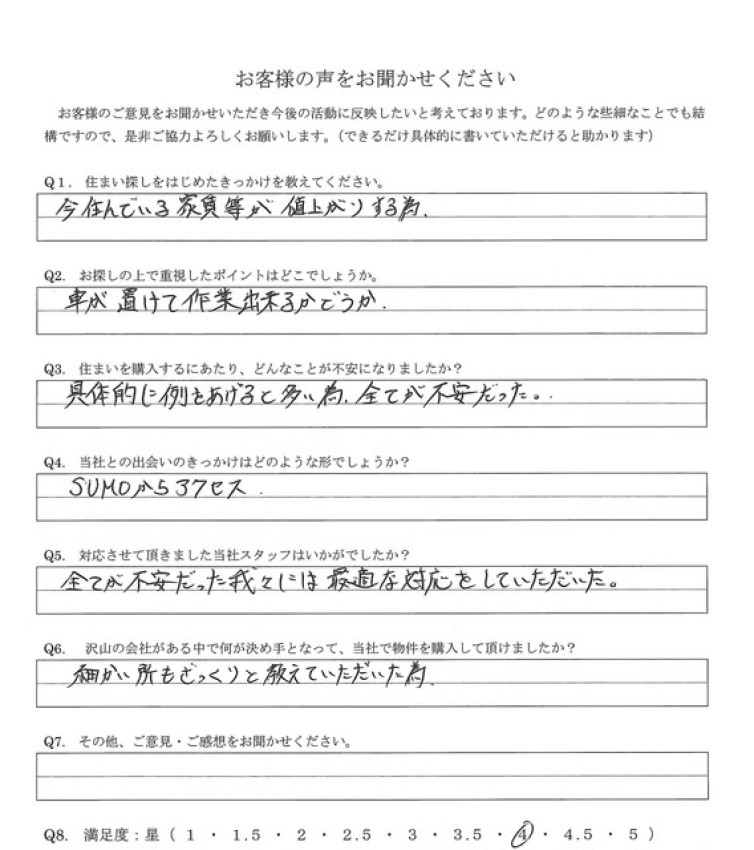 お客様の声をお聞かせください
お客様のご意見をお聞かせいただき今後の活動に反映したいと考えております。どのような些細なことでも結
構ですので、是非ご協力よろしくお願いします。(できるだけ具体的に書いていただけると助かります)
Q1. 住まい探しをはじめたきっかけを教えてください。
今住んでいる家賃等が値上がりする為.
Q2. お探しの上で重視したポイントはどこでしょうか。
車が置けて作業出来るかどうか.
Q3. 住まいを購入するにあたり、どんなことが不安になりましたか?
具体的に例をあげると多い為、全てが不安だった。
Q4. 当社との出会いのきっかけはどのような形でしょうか?
SUMOからアクセス.
Q5. 対応させて頂きました当社スタッフはいかがでしたか?
全てが不安だった我々には最適な対応をしていただいた。
Q6. 沢山の会社がある中で何が決め手となって、当社で物件を購入して頂けましたか?
細かい所もざっくりと教えていただいた為.
Q7. その他、ご意見・ご感想をお聞かせください。
Q8. 満足度:星 ( 1 ・ 1.5 ・ 2 ・ 2.5 ・ 3 ・ 3.5 ・ 4 ・ 4.5 ・ 5 )